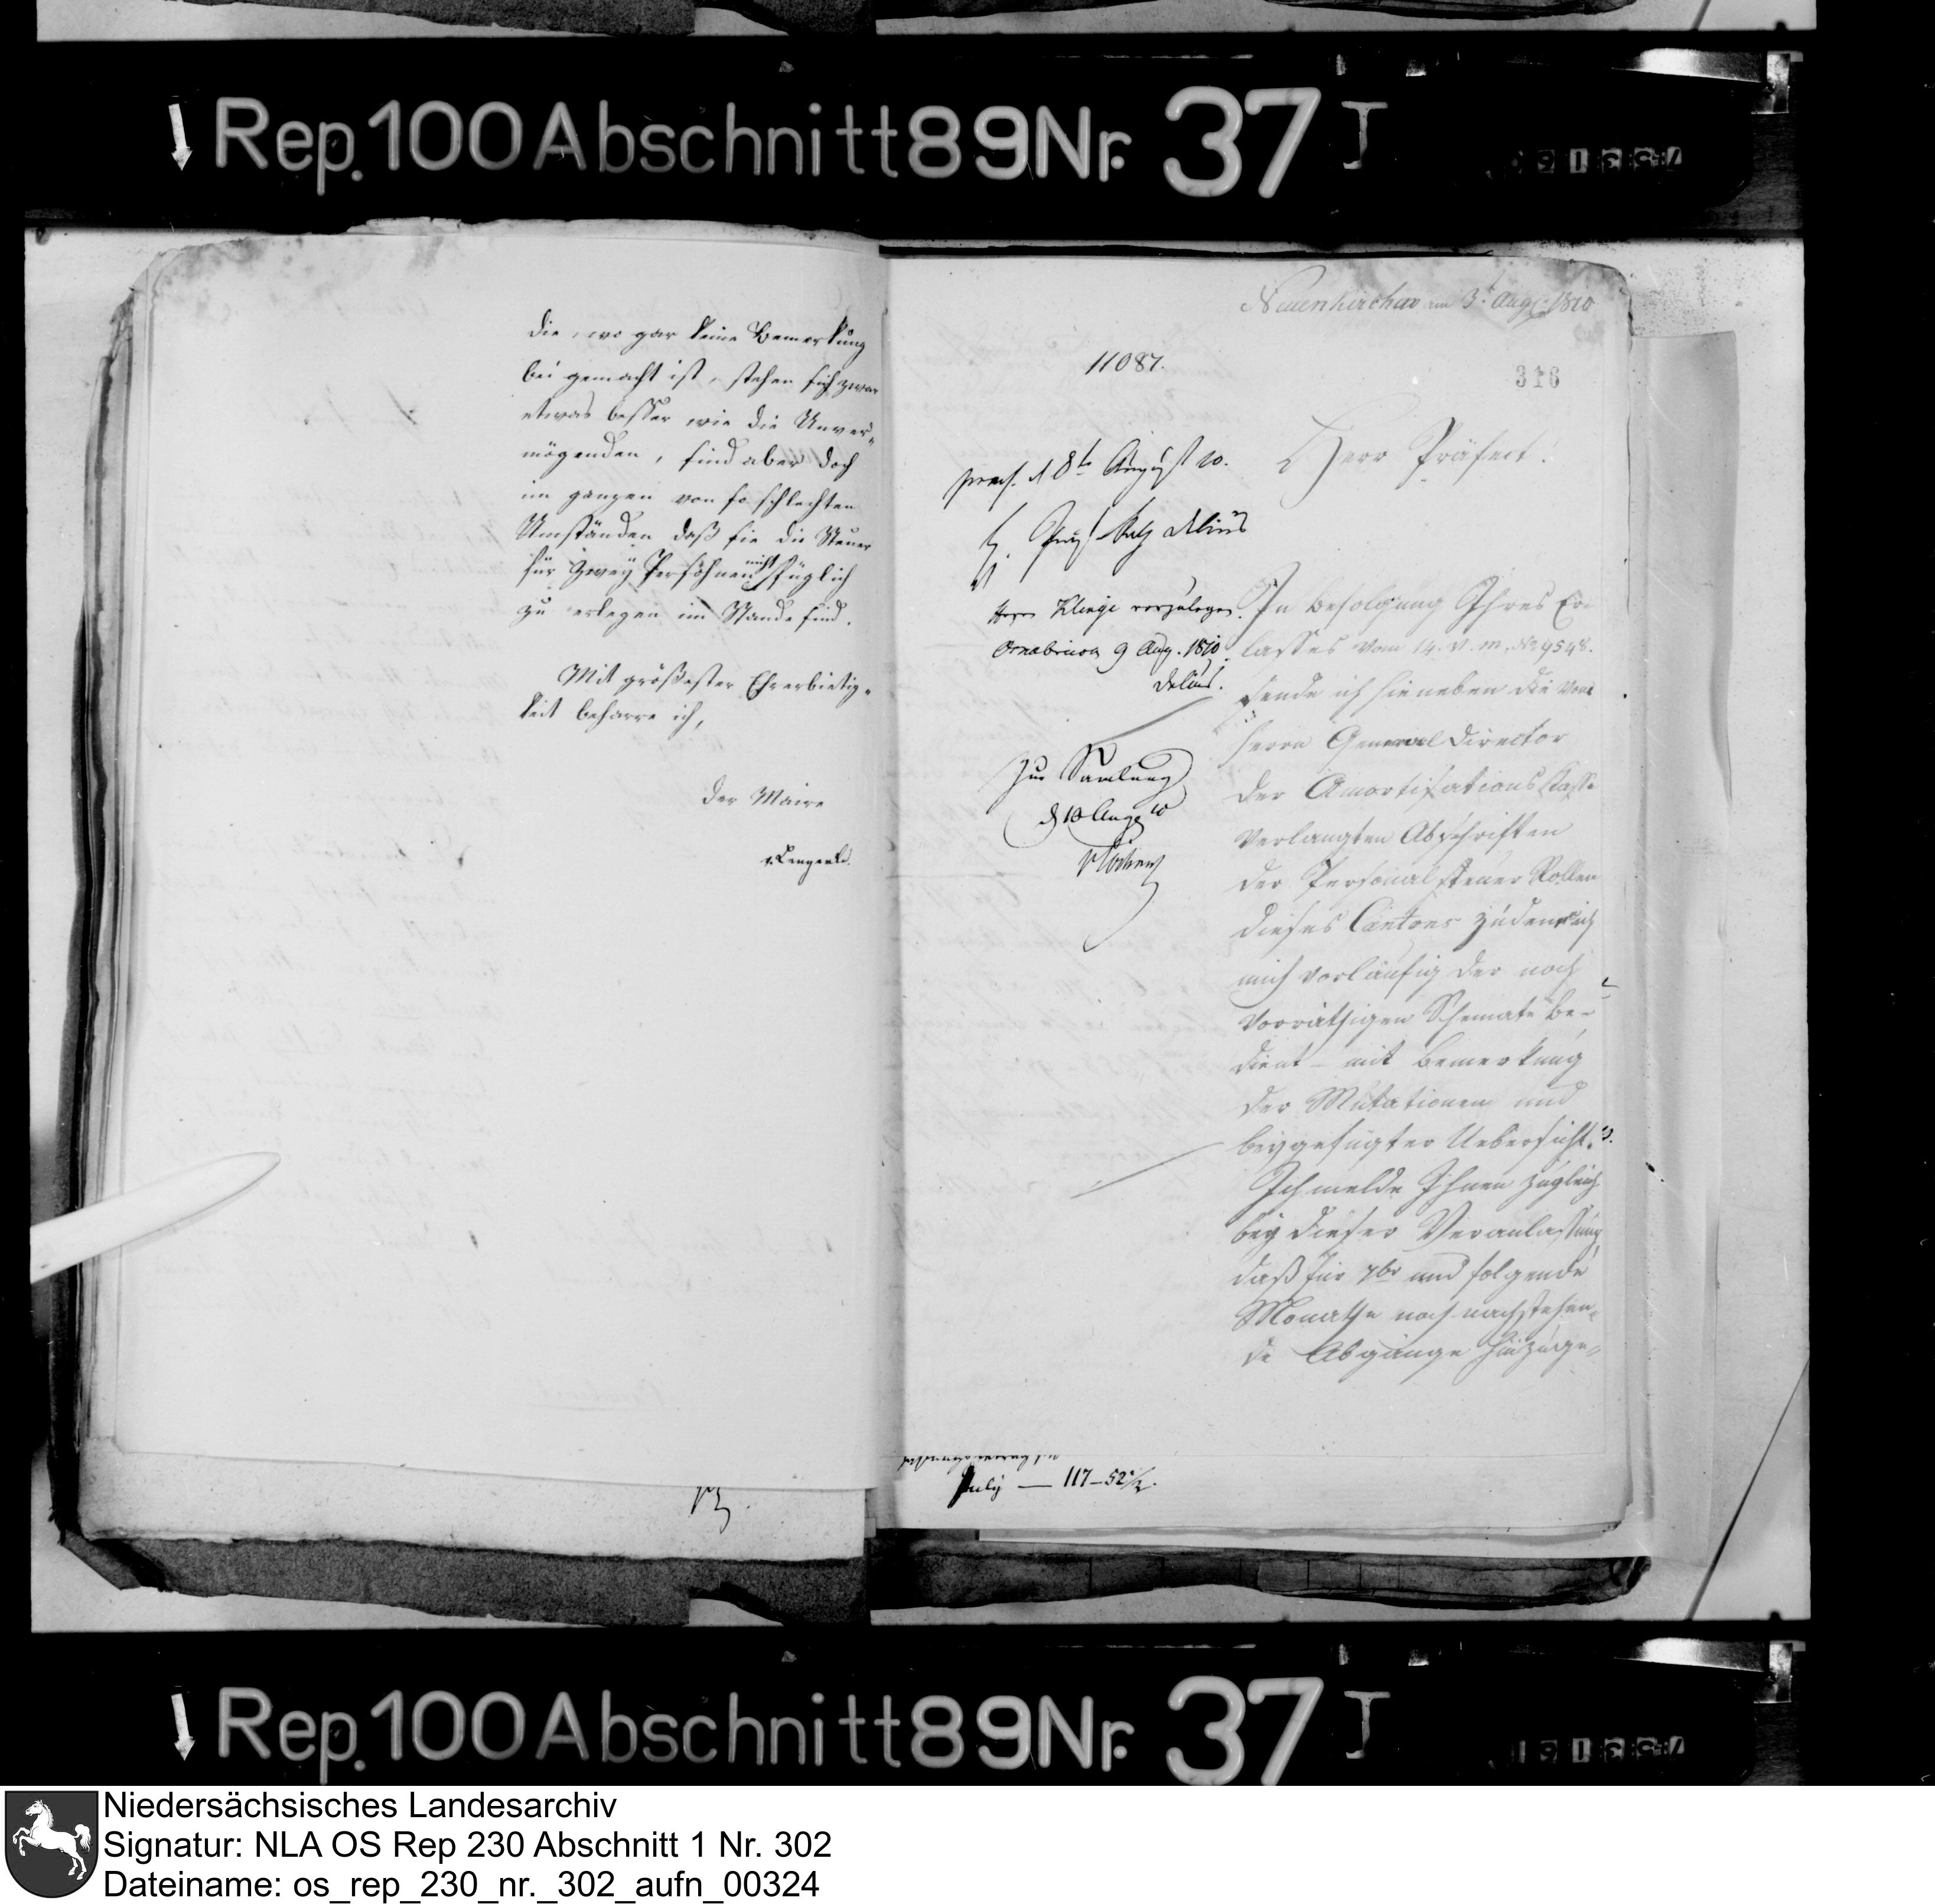 Rep. 100 Abschnitt 89 Nr. 37 I
die, wo gar keine Bemerkung
bei gemacht ist, stehen sich zwar
etwas besser wie die Unver-
mögenden, sind aber doch
im ganzen von so schlechten
Umständen daß sie die Steuer
für Zwey Persohnen nicht füglich
zu erlegen im Stande sind.
Mit größester Ehrerbietig-
keit beharre ich,
der Maire
v. Lengerke.
Neuenkirchen am 3. Aug. 1810
11087.
316
praes. d 8t August 10.
Delius
Herrn Klinge vorzulegen.
Osnabrück 9 Aug. 1810.
Delius.
Zur Samlung
d 10 Aug 10
Herr Präfect!
In befolgung Ihres Er-
lasses vom 14. v. m. No 9548.
sende ich hieneben die vom
Herrn General Director
der Amortisations Kasse
verlangten Abschriften
der Personalsteuer Rollen
dieses Cantons zu denen ich
mich vorläufig der noch
vorräthigen Schemate be-
dient - mit Bemerkung
der Mutationen und
beygefügter Uebersicht.
Ich melde Ihnen zugleich
bey dieser Veranlassung,
daß für 7br und folgende
Monathe noch nachstehen-
de Abgänge hinzuge-
July — 117–52 1/2.
Rep. 100 Abschnitt 89 Nr. 37 I
Niedersächsisches Landesarchiv
Signatur: NLA OS Rep 230 Abschnitt 1 Nr. 302
Dateiname: os_rep_230_nr._302_aufn_00324